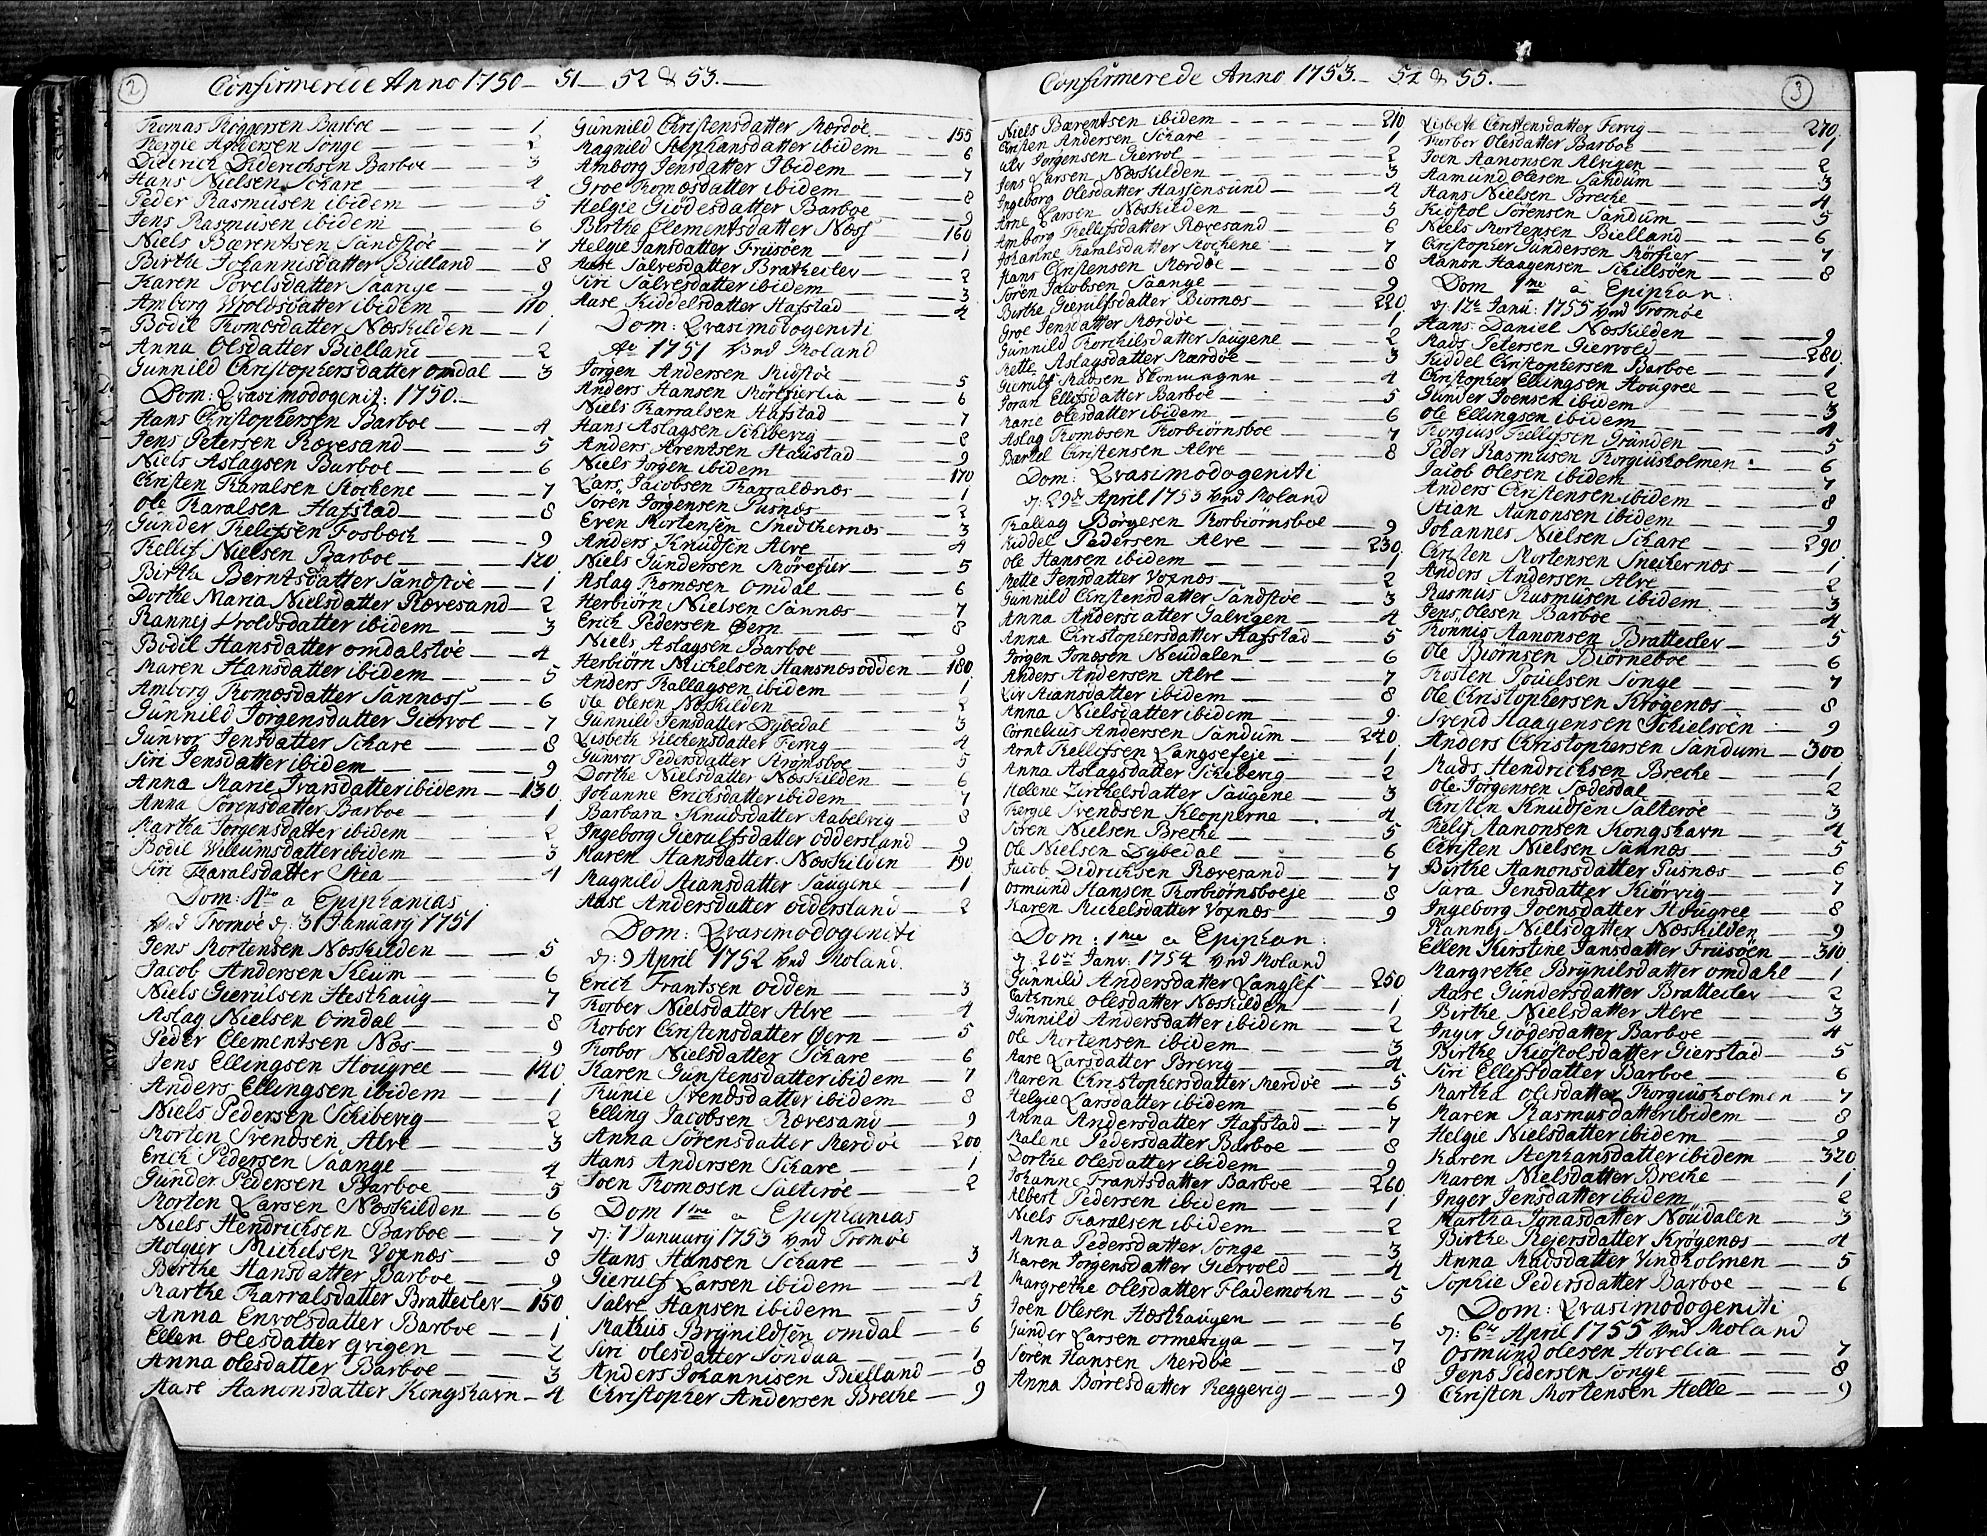 2
Confirmerede Anno 1750 - 51 - 52 & 53. -
Tomas Roggersen Barboe - 1
Tergie Andersen Songe - 2
Diderich Diderichsen Barboe - 3
Hans Nielsen Schare - 4
Peder Rasmusen ibidem - 5
Jens Rasmusen ibidem - 6
Niels Bærentsen Sandstøe - 7
Birthe Johannisdatter Bielland - 8
Karen Tovelsdatter Saange - 9
Amborg Wroldsdatter ibidem - 110
Bodil Tomæsdatter Næskilden - 1
Anna Olsdatter Bielland - 2
Gunnild Christophersdatter omdal - 3
Dom: Qvasimodogenit: 1750. -
Hans Christophersen Barboe - 4
Jens Petersen Rævesand - 5
Niels Aslagsen Barboe - 6
Christen Taralsen Stochene - 7
Ole Taralsen Hafstad - 8
Gunder Tellefsen Fosbæch - 9
Tellef Nielsen Barboe - 120
Birthe Berntsdatter Sandstøe - 1
Dorthe Maria Nielsdatter Rævesand - 2
Rannei Wroldsdatter ibidem - 3
Bodil Hansdatter omdalstøe - 4
Maren Hansdatter ibidem - 5
Amborg Tomæsdatter Sannæss - 6
Gunnild Jörgensdatter Giervol - 7
Gunvor Jensdatter Schare - 8
Siri Jensdatter ibidem - 9
Anna Marie Ivarsdatter ibidem - 130
Anna Sörensdatter Barboe - 1
Martha Jörgensdatter ibidem - 2
Bodil Willumsdatter ibidem - 3
Siri Taralsdatter Stea - 4
Dom: 4te a Epiphanias
Wed Tromöe d: 31 January 1751
Jens Mortensen Næskilden - 5
Jacob Andersen Skeum - 6
Niels Gierulsen Hesthaug - 7
Aslag Nielsen Omdal - 8
Peder Clementsen Næs - 9
Jens Ellingsen Hougree - 140
Anders Ellingsen ibidem - 1
Niels Pedersen Schibevig - 2
Morten Svendsen Alve - 3
Erich Pedersen Saange - 4
Gunder Pedersen Barboe - 5
Morten Larsen Næskilden - 6
Niels Hendrichsen Barboe - 7
Holgier Michelsen Voxnæs - 8
Berthe Hansdatter Barboe - 9
Marthe Tarralsdatter Bratteclev - 150
Anna Envolsdatter Barboe - 1
Ellen Olesdatter Qvigen - 2
Anna olesdatter Barboe - 3
Aase Aanonsdatter Kongshavn - 4
Gunnild Christensdatter Mærdöe - 155
Magnild Stephansdatter ibidem - 6
Amborg Jensdatter Ibidem - 7
Groe Tomæsdatter ibidem - 8
Helgie Giödesdatter Barboe - 9
Birthe Clementsdatter Næss - 160
Helgie Jansdatter Frusöen - 1
Aase Salvesdatter Bratteclev - 2
Siri Salvesdatter ibidem - 3
Aase Kiddelsdatter Hafstad - 4
Dom: Qvasimodogeniti
Ao 1751 Wed Moland
Jörgen Andersen Midstöe - 5
Anders Hansen Mörefierlia - 6
Niels Tarralsen Hafstad - 7
Hans Aslagsen Schibevig - 8
Anders Arentsen Haustad - 9
Niels Jörgen ibidem - 170
Lars Jacobsen Tarraldnæs - 1
Sören Jörgensen Tusnæs - 2
Even Mortensen Snedkernæs - 3
Anders Knudsen Alve - 4
Niels Gundersen Mörefier - 5
Aslag Tomæsen Omdal - 6
Herbiörn Nielsen Sannæs - 7
Erich Pedersen Øern - 8
Niels Aslagsen Barboe - 9
Herbiörn Michelsen Hansnæsodden - 180
Anders Tallagsen ibidem - 1
Ole Olesen Næskilden - 2
Gunnild Jensdatter Dybedal - 3
Lisbeth Vilchensdatter Fervig - 4
Gunvor Pedersdatter Strömsboe - 5
Dorthe Nielsdatter Næskilden - 6
Johanne Erichsdatter ibidem - 7
Barbara Knudsdatter Kabelvig - 8
Ingeborg Gierulfsdatter odderstand - 9
Maren Hansdatter Næskilden - 190
Magnild Stiansdatter Saugene - 1
Aase Andersdatter odderstand - 2
Dom: Qvasimodogeniti
d: 9 April 1752 Wed Moland.
Erich Frantsen Odden - 3
Torber Nielsdatter Alve - 4
Torber Christensdatter Øern - 5
Torbor Nielsdatter Schare - 6
Karen Gunstensdatter ibidem - 7
Trunie Svendsdatter ibidem - 8
Elling Jacobsen Rævesand - 9
Anna Sörensdatter Merdöe - 200
Hans Andersen Schare - 1
Joen Tomæsen Salteröe - 2
Dom 1me a Epiphanias
d: 7 January 1753 Wed Tromöe
Hans Hansen Schare - 3
Gierulf Larsen ibidem - 4
Salve Hansen ibidem - 5
Mathis Brynildsen omdal - 6
Siri olesdatter Söndaa - 7
Anders Johannisen Bielland - 8
Christopher Andersen Breche - 9
3
Confirmerede Anno 1753 - 54 & 55. -
Niels Bærentsen ibidem - 210
Christen Andersen Schare - 1
Ulv Jörgensen Giervol - 2
Jens Larsen Næskilden - 3
Ingeborg Olesdatter Hassensund - 4
Arne Larsen Næskilden - 5
Amborg Tellefsdatter Rævesand - 6
Johanne Taralsdatter Stochene - 7
Hans Christensen Mærdöe - 8
Sören Jacobsen Saange - 9
Birthe Gierulfsdatter Biornæs - 220
Groe Jensdatter Mærdöe - 1
Gunnild Torchilsdatter Saugene - 2
Mette Aslagsdatter Mærdöe - 3
Gierulf Madsen - 4
Joran Ellefsdatter Barboe - 5
Marie Olesdatter ibidem - 6
Aslag Tomæsen Torbiörnsboe - 7
Bærtel Christensen Alve - 8
Dom: Qvasimodogeniti
d: 29de April 1753 Wed Moland
Tallag Börgesen Torbiörnsboe - 9
Kiddel Pedersen Alve - 230
Ole Hansen ibidem - 1
Mette Jensdatter Voxnæs - 2
Gunnild Christensdatter Sandstöe - 3
Anna Andersdatter Salvigen - 4
Anna Christophersdatter Hafstad - 5
Jörgen Jonæsen Neudalen - 6
Anders Andersen Alve - 7
Liv Stiansdatter ibidem - 8
Anna Nielsdatter ibidem - 9
Cornelius Andersen Sandum - 240
Arnt Tellefsen Langsefeje - 1
Anna Aslagsdatter Schibevig - 2
Helene Zirchelsdatter Saugene - 3
Tergie Svendsen Klopperne - 4
Sören Nielsen Breche - 5
Ole Nielsen Dybedal - 6
Jacob Didrichsen Rævesand - 7
Osmund Hansen Torbiörnsboeje - 8
Karen Michelsdatter Voxnæs - 9
Dom: 1mæ a Epiphan:
d: 20de Janv. 1754 Wed Moland
Gunnild Andersdatter Langsef - 250
Catrinne Olesdatter Næskilden - 1
Gunnild Andersdatter ibidem - 2
Ole Mortensen ibidem - 3
Aase Larsdatter Brevig - 4
Maren Christophersdatter Merdöe - 5
Helgie Larsdatter ibidem - 6
Anna Andersdatter Hafstad - 7
Malene Pedersdatter Barboe - 8
Dorthe Olesdatter ibidem - 9
Johanne Frantsdatter Barboe - 260
Albert Pedersen ibidem - 1
Niels Taralsen ibidem - 2
Anna Pedersdatter Songe - 3
Karen Jörgensdatter Giervold - 4
Margrethe Olesdatter Flademohn - 5
Joen Olesen Hæsthaugen - 6
Gunder Larsen ormeviga - 7
Soren Hansen Merdöe - 8
Anna Börresdatter Reggevig - 9
Lisbete Christensdatter Fervig - 270
Torbor Olesdatter Barboe - 1
Joen Aanonsen Alvigen - 2
Aamund Olesen Sandum - 3
Hans Nielsen Breche - 4
Kiöstol Sörensen Sandum - 5
Niels Mortensen Bielland - 6
Christopher Gundersen Mörfier - 7
Aanon Haagensen Schilsöen - 8
Dom 1me a Epiphan:
d: 12te Janu: 1755 Wed Tromöe
Hans Daniel Næskilden - 9
Mads Petersen Giervold - 280
Kiddel Christophersen Barboe - 1
Christopher Ellingsen Hougree - 2
Gunder Joensen ibidem - 3
Ole Ellingsen ibidem - 4
Torgius Tellefsen Grunden - 5
Peder Rasmusen Torgiusholmen - 6
Jacob Olesen ibidem - 7
Anders Christensen ibidem - 8
Stian Aanonsen ibidem - 9
Johannes Nielsen Schare - 290
Christen Mortensen Snechernæs - 1
Anders Andersen Alve - 2
Rasmus Rasmusen ibidem - 3
Jens Olesen Barboe - 4
Tönnis Aanonsen Bratteclev - 5
Ole Biörnsen Biörneboe - 6
Tosten Souelsen Songe - 7
Ole Christophersen Krögenæs - 8
Svend Haagensen Schielsöen - 9
Anders Christophersen Sandum - 300
Mads Hendrichsen Breche - 1
Ole Jörgensen Sædesdal - 2
Christen Knudsen Salteröe - 3
Telif Aanonsen Kongshavn - 4
Christen Nielsen Sannæs - 5
Birthe Aanonsdatter Tusnæs - 6
Sara Jensdatter Kiörvig - 7
Ingeborg Joensdatter Hougree - 8
Rannei Nielsdatter Næskilden - 9
Ellen Kierstine Jansdatter Friisöen - 310
Margrethe Brynilsdatter omdahl - 1
Aase Gundersdatter Bratteclev - 2
Birthe Nielsdatter Alve - 3
Inger Giödesdatter Barboe - 4
Birthe Kiöstolsdatter Gierstad - 5
Siri Ellefsdatter Barboe - 6
Martha Olesdatter Torgiusholmen - 7
Maren Rasmusdatter ibidem - 8
Helgie Nielsdatter ibidem - 9
Karen Stephansdatter ibidem - 320
Maren Nielsdatter Breche - 1
Inger Jensdatter ibidem - 2
Martha Jonasdatter Nöudalen - 3
Birthe Reiersdatter Krögenæs - 4
Anna Madsdatter Vindholmen - 5
Sophie Pedersdatter Barboe - 6
Dom: Qvasimodogeniti
d: 6te April 1755 Wed Moland
Osmund Olesen Hovelia - 7
Jens Pedersen Songe - 8
Christen Mortensen Helle - 9